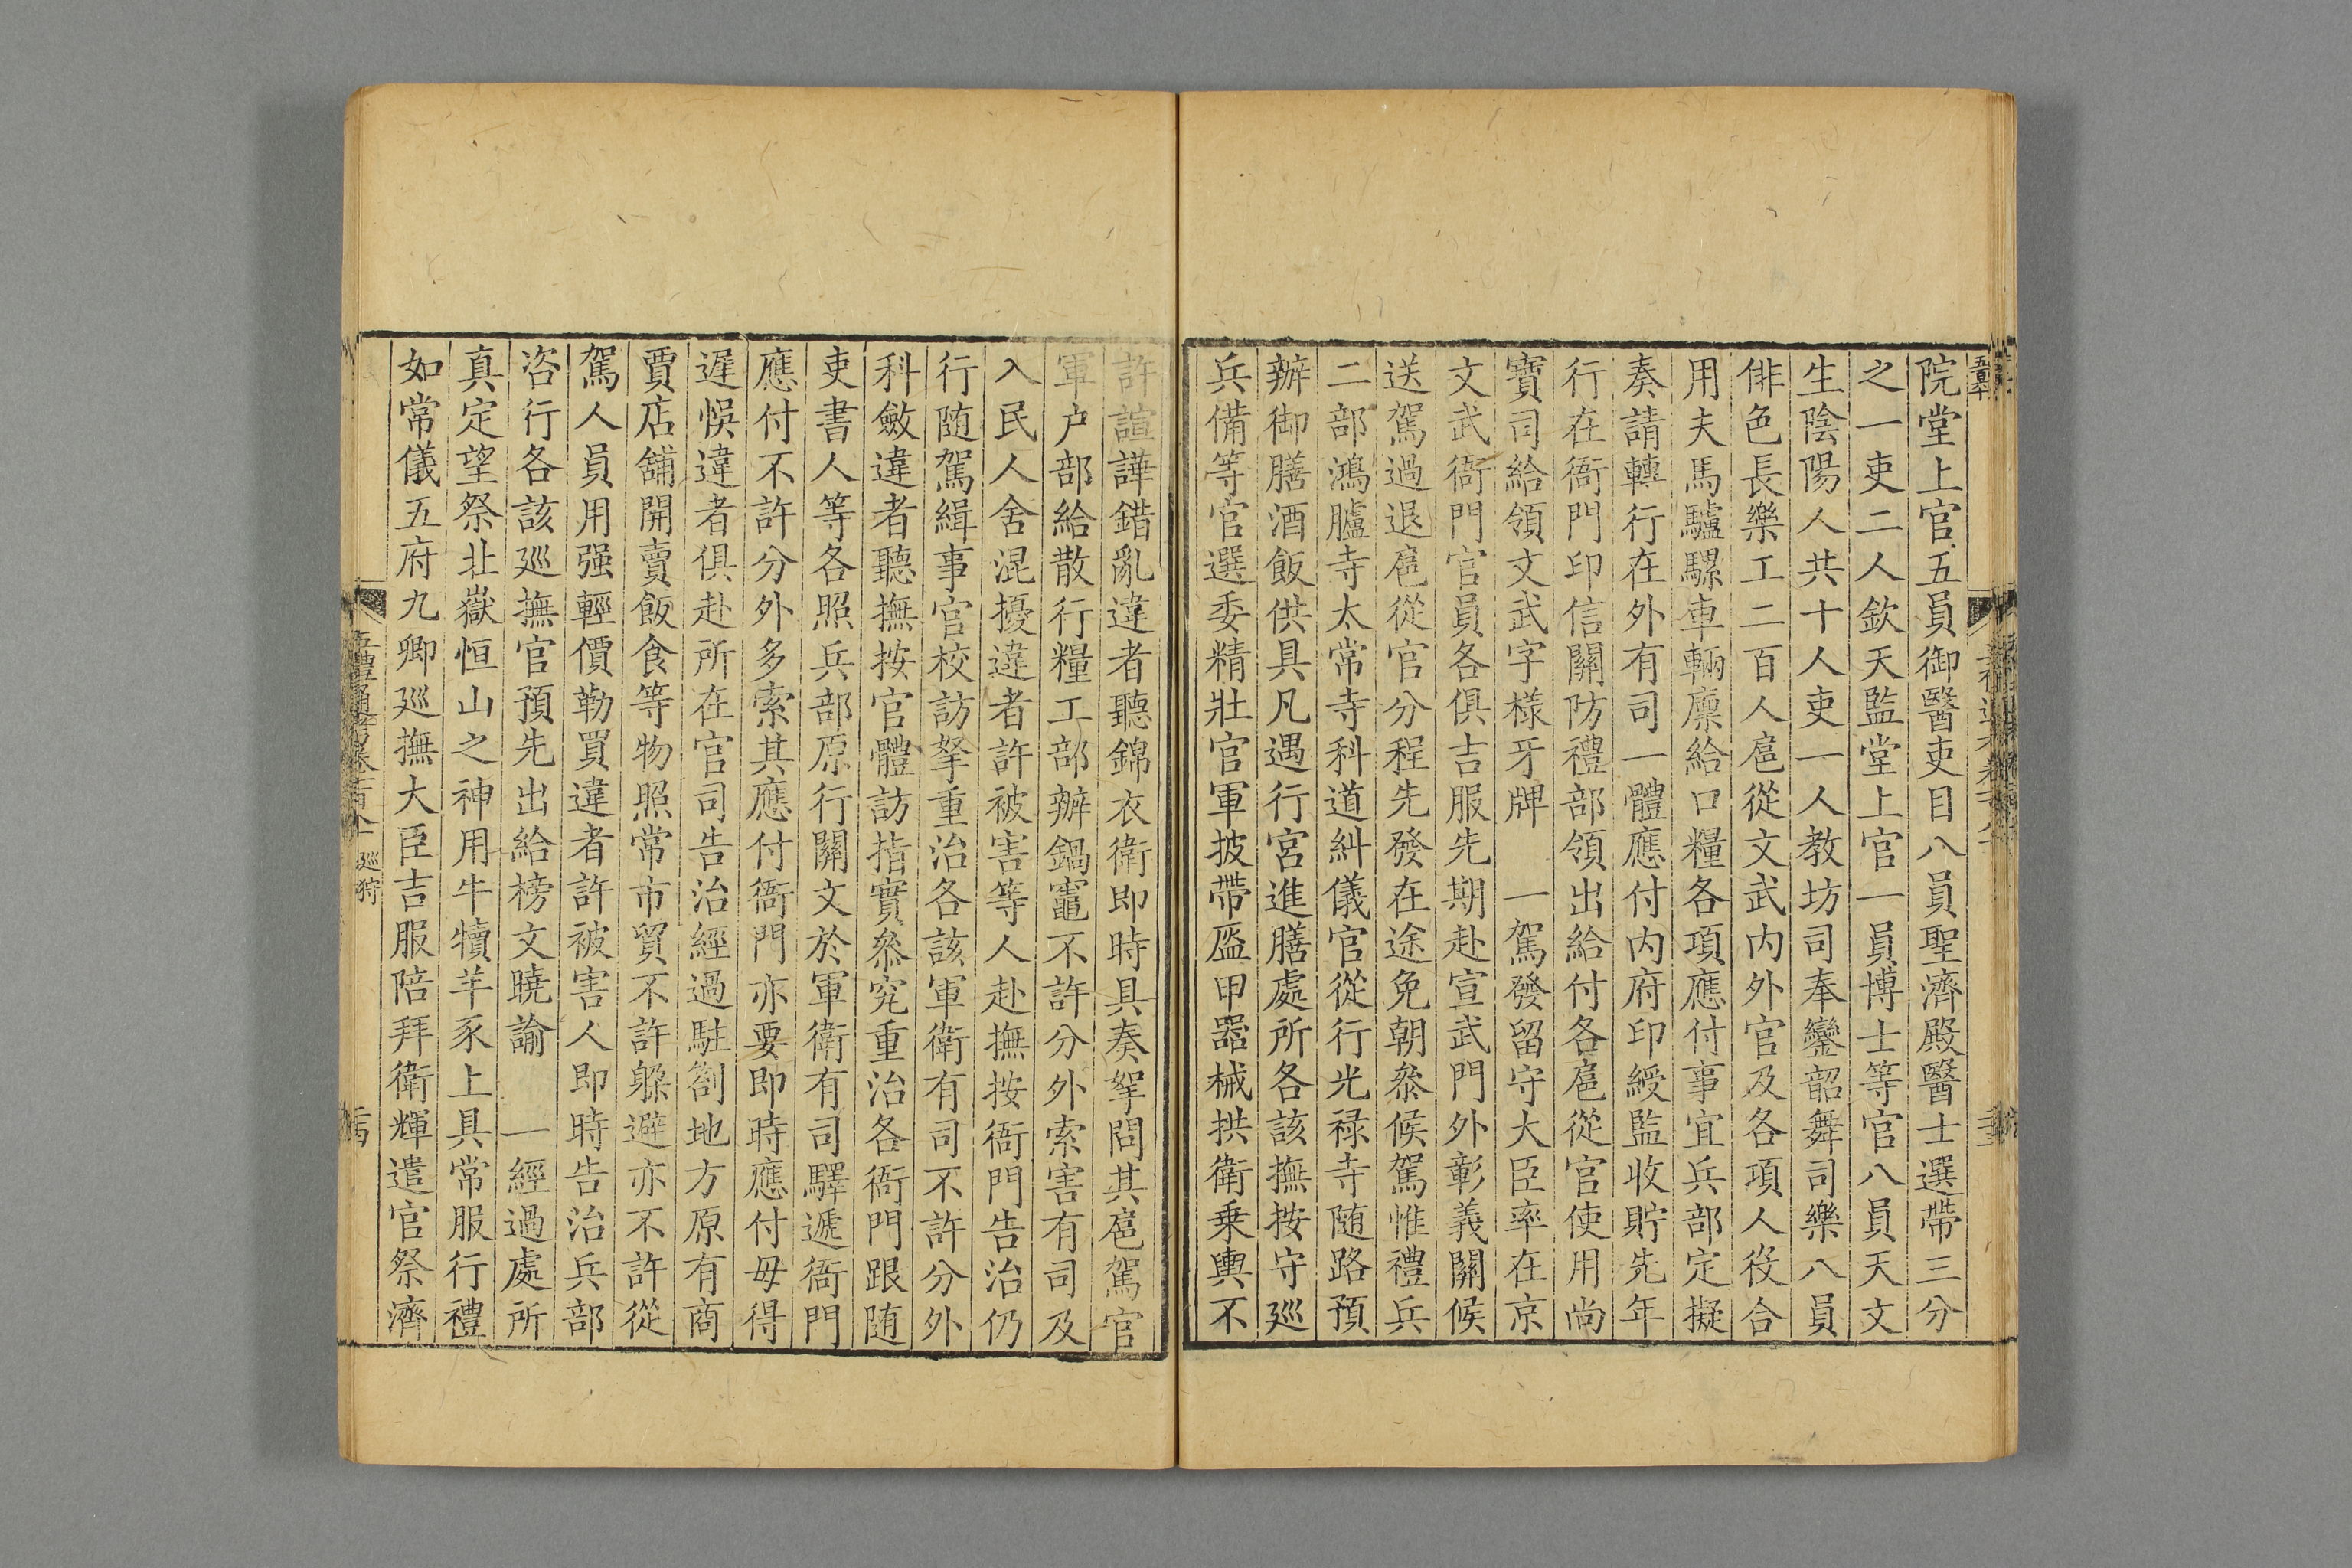 院堂上官五員御醫吏目八員聖濟殿醫士選帶三分
之一吏二人欽天監堂上官一員博士等官八員天文
生陰陽人共十人吏一人教坊司奉鑾韶舞司樂八員
俳色長樂工二百人扈從文武內外官及各項人役合
用夫馬驢騾車輛廪給口糧各項應付事宜兵部定擬
奏請轉行在外有司一體應付內府印綬監收貯先年
行在衙門印信關防禮部領出給付各扈從官使用尚
寶司給領文武字樣牙牌　一駕發留守大臣率在京
文武衙門官員各俱吉服先期赴宣武門外彰義關候
送駕過退扈從官分程先發在途免朝叅候駕惟禮兵
二部鴻臚寺太常寺科道糾儀官從行光禄寺随路預
辦御膳酒飯供具凡遇行宮進膳處所各該撫按守廵
兵備等官選委精壯官軍披帶盔甲器械拱衛乗輿不
許諠譁錯亂違者聽錦衣衛即時具奏拏問其扈駕官
軍户部給散行糧工部辦鍋竈不許分外索害有司及
入民人舍混擾違者許被害等人赴撫按衙門告治仍
行随駕緝事官校訪拏重治各該軍衛有司不許分外
科斂違者聽撫按官體訪指實叅究重治各衙門跟随
吏書人等各照兵部原行關文於軍衛有司驛遞衙門
應付不許分外多索其應付衙門亦要即時應付毋得
遲悞違者俱赴所在官司告治經過駐劄地方原有商
賈店舖開賣飯食等物照常市貿不許躱避亦不許從
駕人員用强輕價勒買違者許被害人即時告治兵部
咨行各該廵撫官預先出給榜文曉諭　一經過處所
真定望祭北嶽恒山之神用牛犢羊豕上具常服行禮
如常儀五府九卿廵撫大臣吉服陪拜衛輝遣官祭濟
廵狩